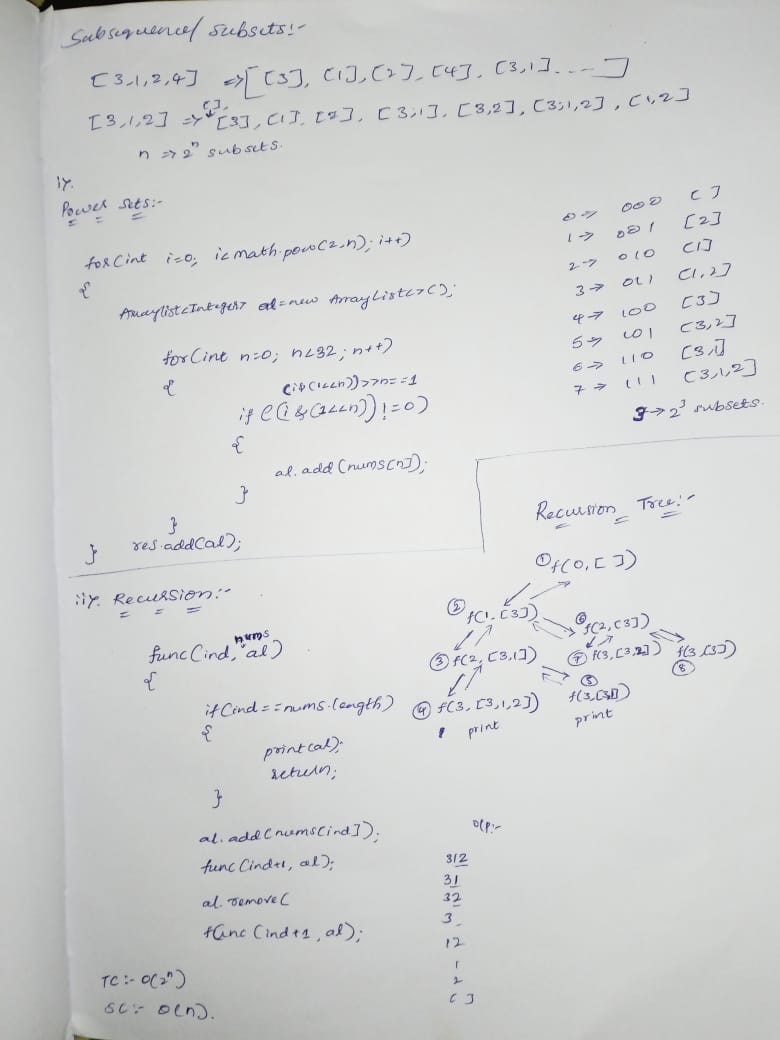 Subsequence/ Subsets:-
[3,1,2,4] => [[3], [1], [2], [4], [3,1]. ---]
[3,1,2] => [ ], [3], [1], [2], [3,1], [3,2], [3,1,2], [1,2]
n => 2ⁿ subsets.
i).
Power Sets:-
for(int i=0; i<math.pow(2,n); i++)
{
ArrayList<Integer> al=new ArrayList<>();
for(int n=0; n<32; n++)
{
(i&(1<<n))>>n==1
if((i&(1<<n))!=0)
{
al.add(nums[n]);
}
}
res.add(al);
}
0 -> 000 [ ]
1 -> 001 [2]
2 -> 010 [1]
3 -> 011 [1,2]
4 -> 100 [3]
5 -> 101 [3,2]
6 -> 110 [3,1]
7 -> 111 [3,1,2]
3 -> 2³ subsets.
ii). Recursion:-
func(ind, nums al)
{
if(ind==nums.length)
{
print(al);
return;
}
al.add(nums[ind]);
func(ind+1, al);
al.remove(
func(ind+1, al);
TC:- O(2ⁿ)
SC:- O(n).
Recursion Tree:-
① f(0,[ ])
② f(1,[3])
③ f(2,[3,1]) ⑥ f(2,[3])
④ f(3,[3,1,2]) ⑤ f(3,[3,1]) ⑦ f(3,[3,2]) f(3,[3]) ⑧
print print
O/P:-
312
31
32
3
12
1
2
[ ]